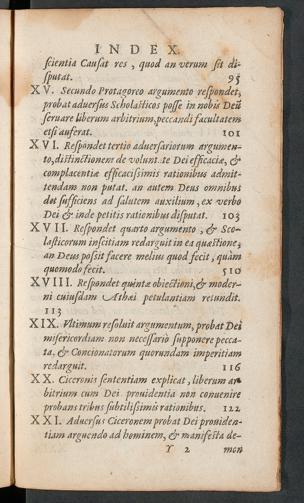 INDEX.
scientia Causat res, quod an verum sit di-
sputat. 95
XV. Secundo Protagoreo argumento respondet,
probat adversus Scholasticos posse in nobis Deũ
servare liberum arbitrium, peccandi facultatem
etsi auferat. 101
XVI. Respondet tertio adversariorum argumen-
to, distinctionem de volunt te Dei efficacis, &
complacentiæ efficacissimis rationibus admit-
tendam non putat. an autem Deus omnibus
det sufficiens ad salutem auxilium, ex verbo
Dei & inde petitis rationibus disputat. 103
XVII. Respondet quarto argumento, & Sco-
lasticorum inscitiam redarguit in ea quæstione,
an Deus possit facere melius quod fecit, quàm
quomodo fecit. 510
XVIII. Respondet quintæ obiectioni, & moder-
ni cuiusdam Athæi petulantiam retundit.
113
XIX. Vltimum resoluit argumentum, probat Dei
misericordiam non necessariò supponere pecca-
ta, & Concionatorum quorundam imperitiam
redarguit. 116
XX. Ciceronis sententiam explicat, liberum ar-
bitrium cum Dei prouidentia non conuenire
probans tribus subtilissimis rationibus. 122
XXI. Aduersus Ciceronem probat Dei prouiden-
tiam arguendo ad hominem, & manifesta de-
Y 2 mon